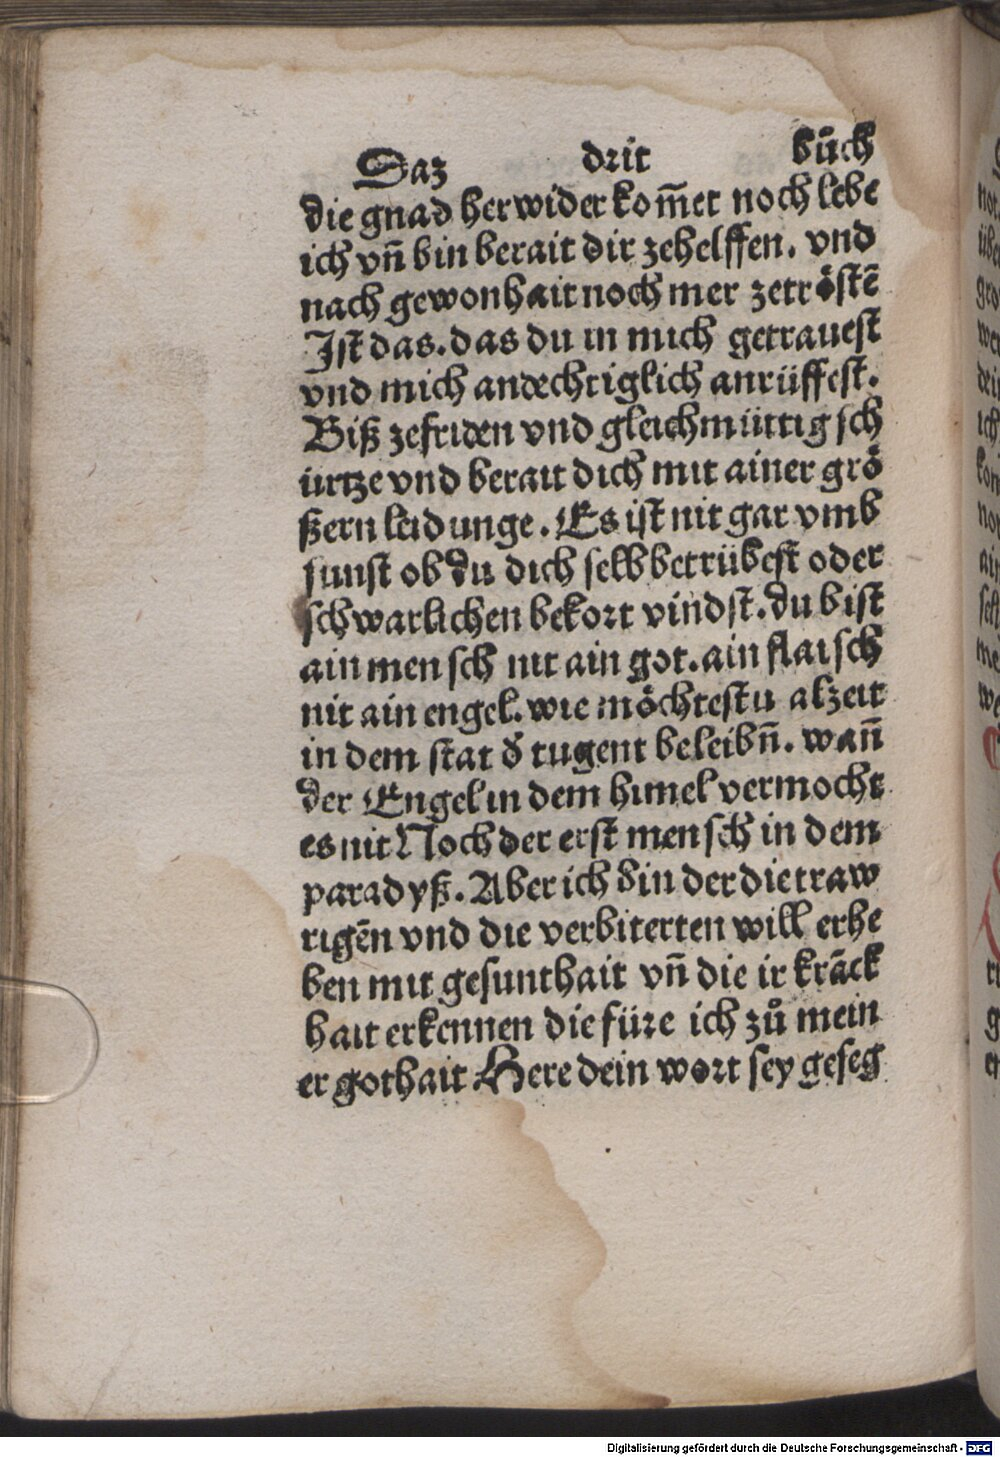 Daz drit bůch
die gnad herwider kom̄et noch lebe
ich vn̄ bin berait dir zehelffen. vnd
nach gewonhait noch mer zetröstē
Ist das. das du in mich getrauest
vnd mich andechtiglich anrüffest.
Biß zefriden vnd gleichmüttig sch
ürtze vnd berait dich mit ainer grö
ßern leidunge. Es ist nit gar vmb
sunst ob du dich selb betrübest oder
schwarlichen bekort vindst. du bist
ain mensch nit ain got. ain flaisch
nit ain engel. wie möchtestu alzeit
in dem stat d̄ tugent beleibn̄. wan̄
der Engel in dem himel vermocht
es nit Noch der erst mensch in dem
paradyß. Aber ich bin der die traw
rigēn vnd die verbiterten will erhe
ben mit gesunthait vn̄ die ir krāck
hait erkennen die füre ich zů mein
er gothait Here dein wort sey geseg
Digitalisierung gefördert durch die Deutsche Forschungsgemeinschaft - DFG